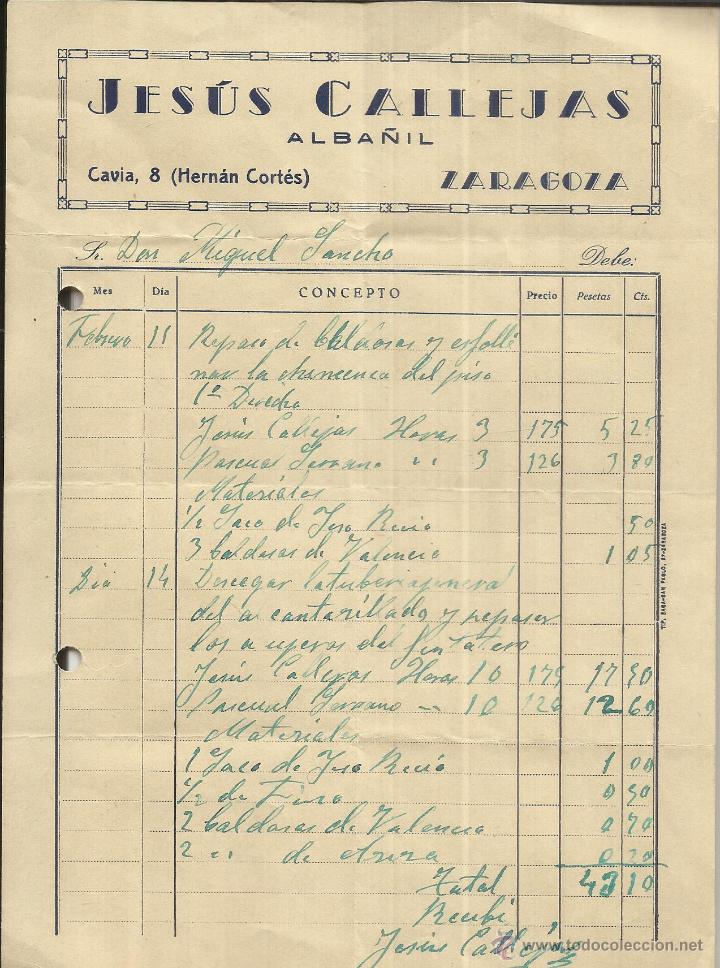 JESÚS CALLEJAS
ALBAÑIL
Cavia, 8 (Hernán Cortés) ZARAGOZA
Sr. Don Miguel Sancho Debe:
Mes Día CONCEPTO Precio Pesetas Cts.
Febrero 11 Repaso de baldosas y
la chimenea del piso
1º Derecha
Jesús Callejas Horas 3 175 5 25
Pascual Serrano " 3 126 3 80
Materiales
1/2 Saco de Yeso Recio 50
3 baldosas de Valencia 1 05
Dia 14 Descegar la tuberia
del a cantarillado y repasar
los a ujeros del
Jesús Callejas Horas 10 175 17 50
Pascual Serrano " 10 126 12 60
Materiales
1 Saco de Yeso Recio 1 00
1/2 de Fino 0 50
2 baldosas de Valencia 0 70
2 " de 0 20
Total 43 10
Recibi
Jesús Callejas
TIP. SAN PABLO, ZARAGOZA
www.todocoleccion.net